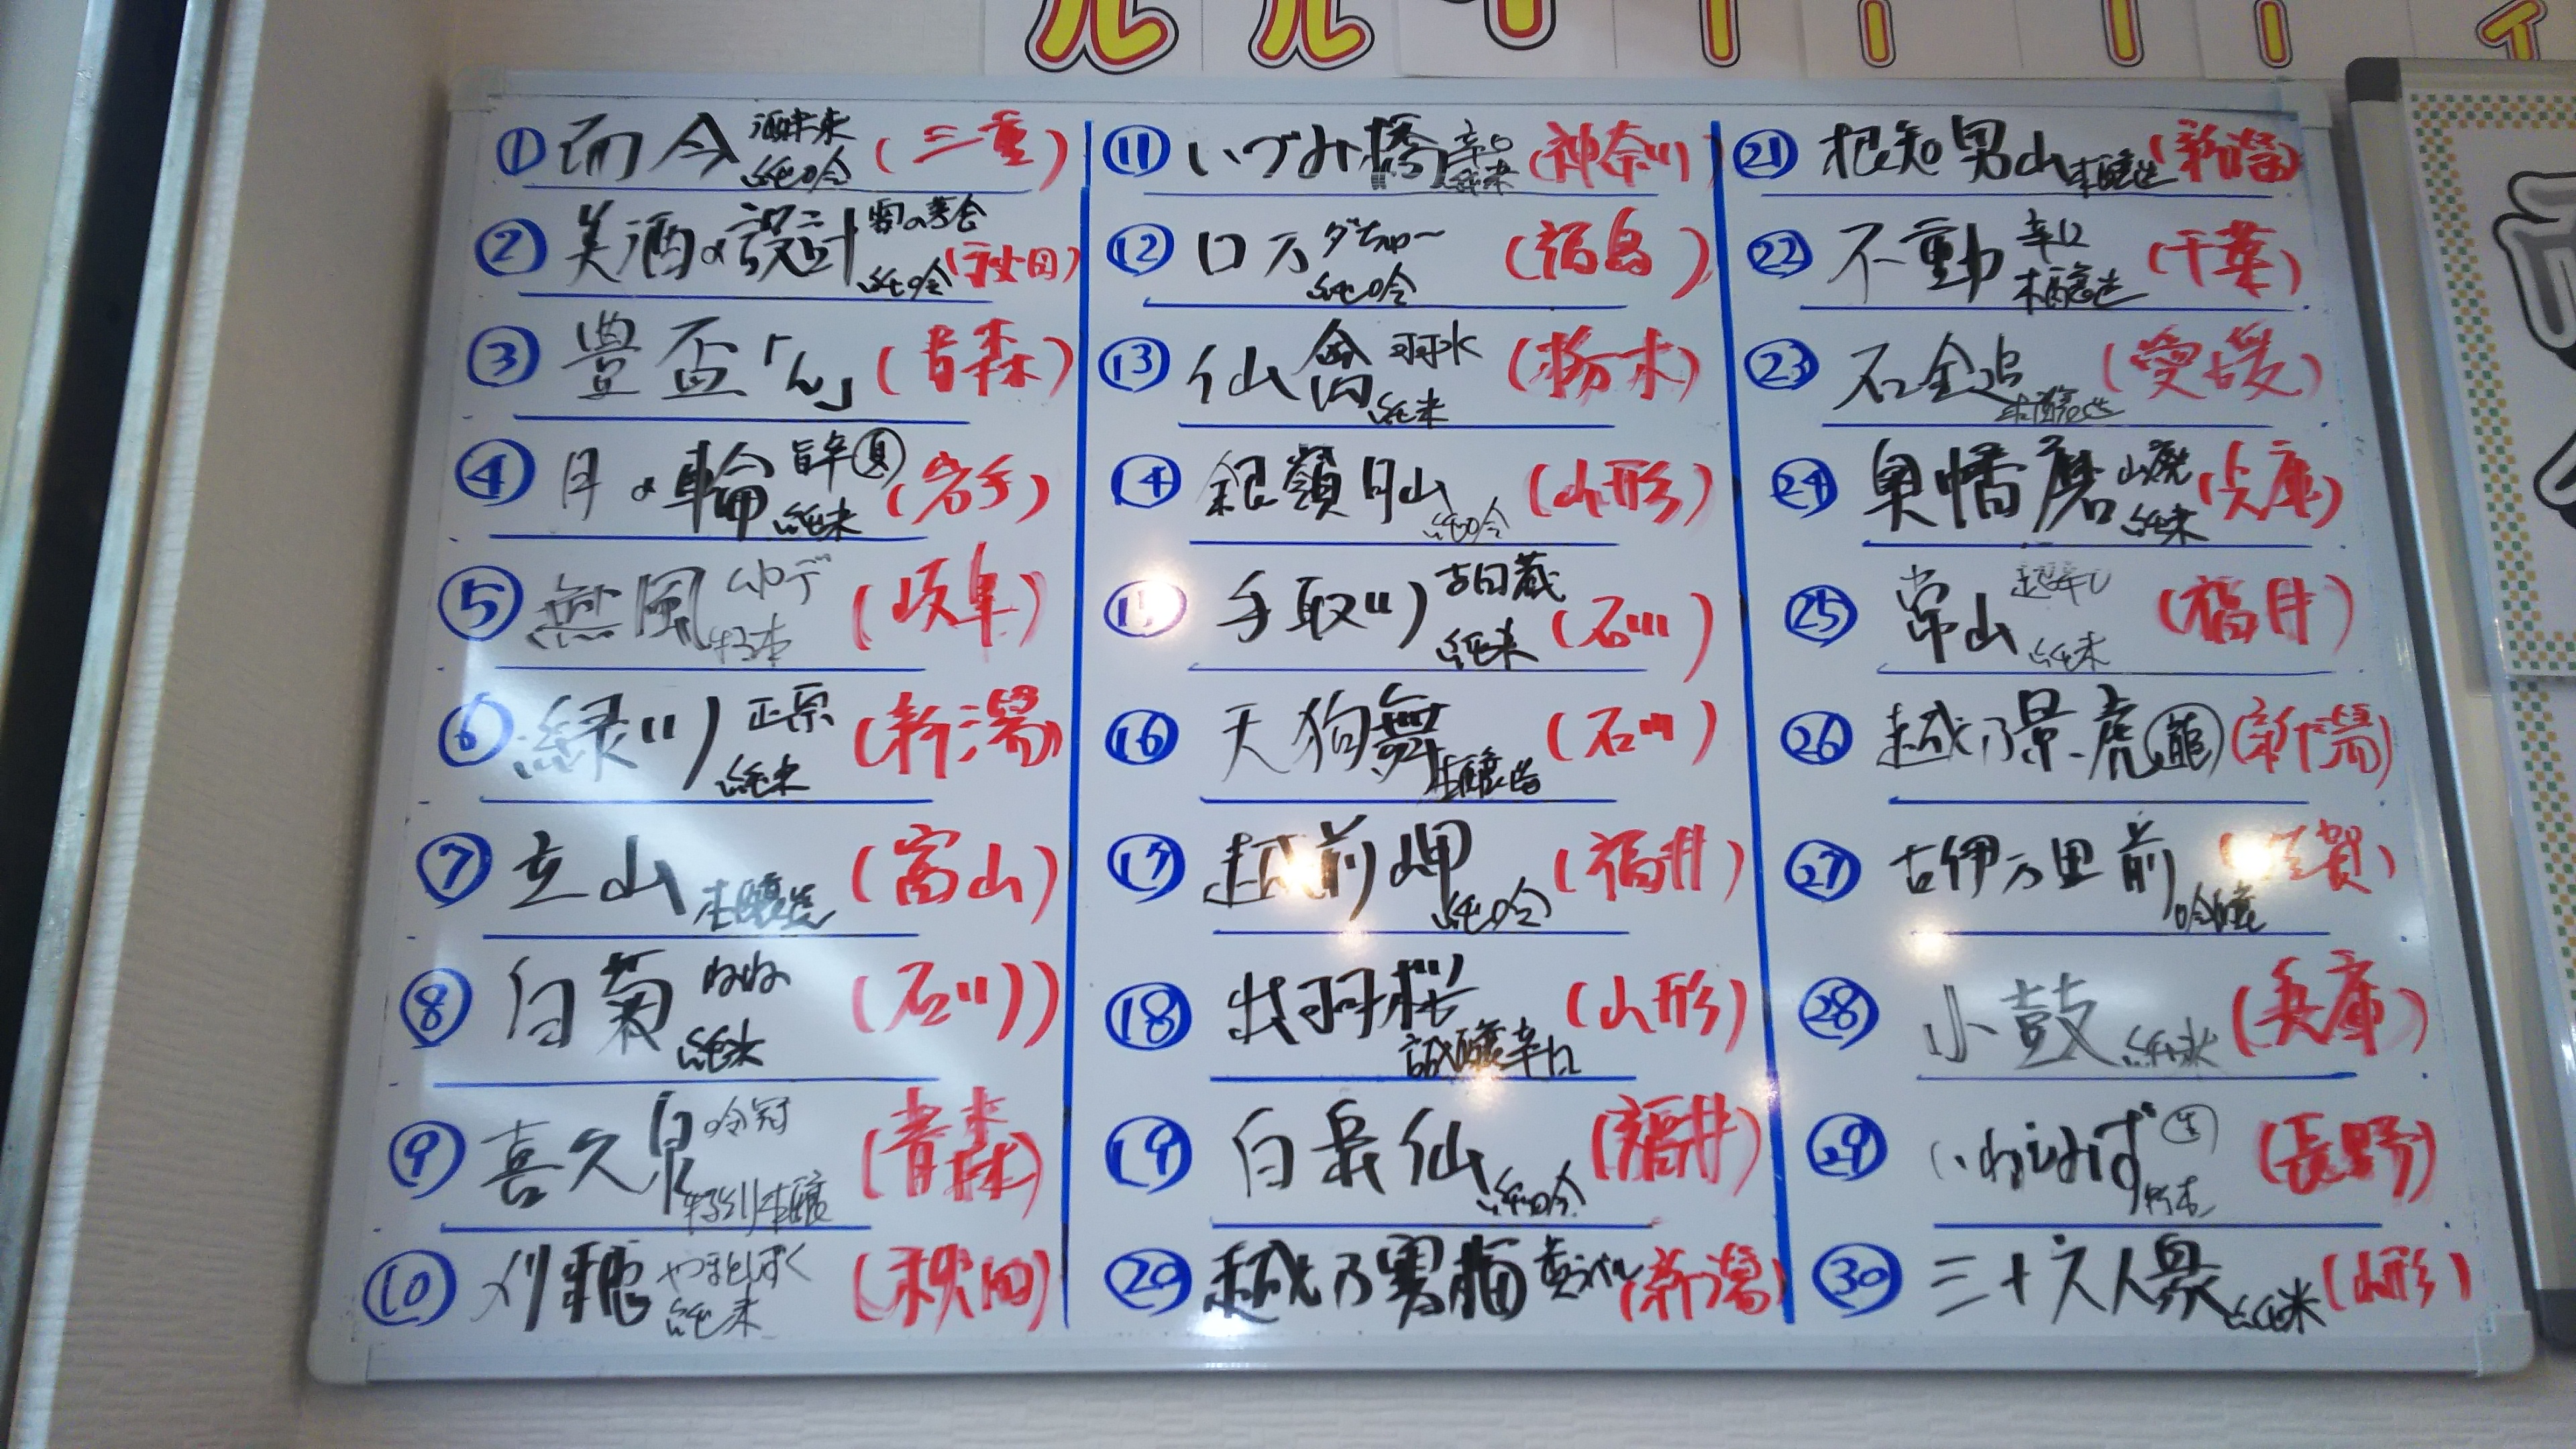 ① 而今 酒未来 純吟 (三重)
② 美酒の設計 雪の茅舎 純吟 (秋田)
③ 豊盃「ん」 (青森)
④ 月の輪 旨辛 夏 純米 (岩手)
⑤ 無風 むかで 特本 (岐阜)
⑥ 緑川 正宗 純米 (新潟)
⑦ 立山 本醸造 (富山)
⑧ 白菊 ねね 純米 (石川)
⑨ 喜久泉 吟冠 特別本醸 (青森)
⑩ 刈穂 やまとしずく 純米 (秋田)
⑪ いづみ橋 辛口 純米 (神奈川)
⑫ ロ万 ダぢゅー 純吟 (福島)
⑬ 仙禽 羽水 純米 (栃木)
⑭ 銀嶺月山 純吟 (山形)
⑮ 手取川 吉田蔵 純米 (石川)
⑯ 天狗舞 本醸造 (石川)
⑰ 越前岬 純吟 (福井)
⑱ 出羽桜 誠醸辛口 (山形)
⑲ 白岳仙 純吟 (福井)
⑳ 越乃寒梅 (新潟)
㉑ 根知男山 本醸造 (新潟)
㉒ 不動 辛口 本醸造 (千葉)
㉓ 石鎚 本醸造 (愛媛)
㉔ 奥播磨 山廃 純米 (兵庫)
㉕ 常山 超辛口 純米 (福井)
㉖ 越乃景虎 龍 (新潟)
㉗ 古伊万里 前 吟醸 (佐賀)
㉘ 小鼓 純米 (兵庫)
㉙ いねしみず 生 特本 (長野)
㉚ 三十六人衆 純米 (山形)